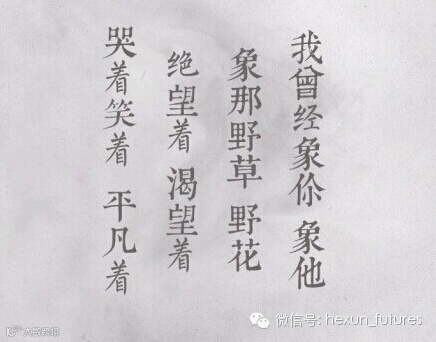 我曾经象你 象他
象那野草 野花
绝望着 渴望着
哭着笑着 平凡着
微信号: hexun_futures